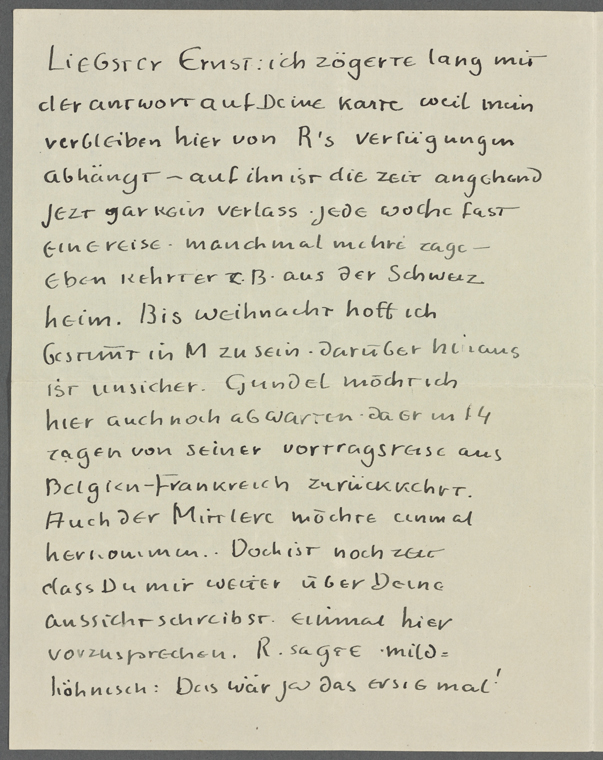 Liebster Ernst: ich zögerte lang mit
der antwort auf Deine karte weil mein
verbleiben hier von R's verfügungen
abhängt – auf ihn ist die zeit angehend
jezt gar kein verlass · jede woche fast
eine reise · manchmal mehre tage –
eben kehrt er z.B. aus der Schweiz
heim. Bis weihnacht hoff ich
bestimmt in M zu sein · darüber hinaus
ist unsicher. Gundel möcht ich
hier auch noch abwarten · da er in 14
tagen von seiner vortragsreise aus
Belgien-Frankreich zurückkehrt.
Auch der Mittlere möchte einmal
herkommen.. Doch ist noch zeit
dass Du mir weiter über Deine
aussicht schreibst · einmal hier
vorzusprechen. R. sagte mild=
höhnisch: Das wär ja das erste mal!